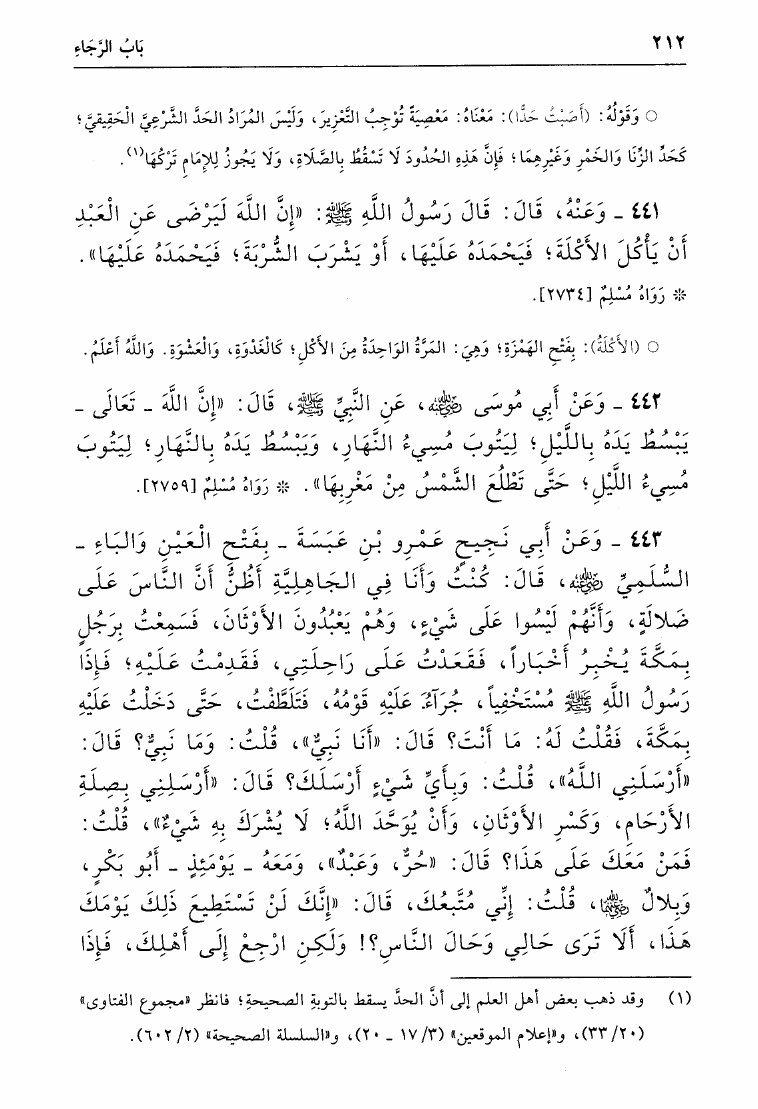 ٢١٢ بَابُ الرَّجَاءِ
○ وَقَوْلُهُ: (أَصَبْتُ حَدًّا): مَعْنَاهُ: مَعْصِيَةً تُوْجِبُ التَّعْزِيرَ، وَلَيْسَ المُرَادُ الحَدَّ الشَّرْعِيَّ الْحَقِيقِيَّ؛
كَحَدِّ الزِّنَا وَالخَمْرِ وَغَيْرِهِمَا؛ فَإِنَّ هَذِهِ الحُدُودَ لَا تَسْقُطُ بِالصَّلَاةِ، وَلَا يَجُوزُ لِلإِمَامِ تَرْكُهَا(١).
٤٤١ ـ وَعَنْهُ، قَالَ: قَالَ رَسُولُ اللَّهِ ﷺ: «إِنَّ اللَّهَ لَيَرْضَى عَنِ الْعَبْدِ
أَنْ يَأْكُلَ الأَكْلَةَ؛ فَيَحْمَدَهُ عَلَيْهَا، أَوْ يَشْرَبَ الشُّرْبَةَ؛ فَيَحْمَدَهُ عَلَيْهَا».
* رَوَاهُ مُسْلِمٌ [٢٧٣٤].
○ (الأَكْلَةُ): بِفَتْحِ الهَمْزَةِ؛ وَهِيَ: المَرَّةُ الوَاحِدَةُ مِنَ الأَكْلِ؛ كَالْغَدْوَةِ، وَالْعَشْوَةِ. وَاللَّهُ أَعْلَمُ.
٤٤٢ ـ وَعَنْ أَبِي مُوسَى رَضِيَ اللَّهُ عَنْهُ، عَنِ النَّبِيِّ ﷺ، قَالَ: «إِنَّ اللَّهَ ـ تَعَالَى ـ
يَبْسُطُ يَدَهُ بِاللَّيْلِ؛ لِيَتُوبَ مُسِيءُ النَّهَارِ، وَيَبْسُطُ يَدَهُ بِالنَّهَارِ؛ لِيَتُوبَ
مُسِيءُ اللَّيْلِ؛ حَتَّى تَطْلُعَ الشَّمْسُ مِنْ مَغْرِبِهَا». * رَوَاهُ مُسْلِمٌ [٢٧٥٩].
٤٤٣ ـ وَعَنْ أَبِي نَجِيحٍ عَمْرِو بْنِ عَبَسَةَ ـ بِفَتْحِ الْعَيْنِ وَالبَاءِ ـ
السُّلَمِيِّ رَضِيَ اللَّهُ عَنْهُ، قَالَ: كُنْتُ وَأَنَا فِي الجَاهِلِيَّةِ أَظُنُّ أَنَّ النَّاسَ عَلَى
ضَلَالَةٍ، وَأَنَّهُمْ لَيْسُوا عَلَى شَيْءٍ، وَهُمْ يَعْبُدُونَ الأَوْثَانَ، فَسَمِعْتُ بِرَجُلٍ
بِمَكَّةَ يُخْبِرُ أَخْبَاراً، فَقَعَدْتُ عَلَى رَاحِلَتِي، فَقَدِمْتُ عَلَيْهِ؛ فَإِذَا
رَسُولُ اللَّهِ ﷺ مُسْتَخْفِياً، جُرَآءُ عَلَيْهِ قَوْمُهُ، فَتَلَطَّفْتُ، حَتَّى دَخَلْتُ عَلَيْهِ
بِمَكَّةَ، فَقُلْتُ لَهُ: مَا أَنْتَ؟ قَالَ: «أَنَا نَبِيٌّ»، قُلْتُ: وَمَا نَبِيٌّ؟ قَالَ:
«أَرْسَلَنِي اللَّهُ»، قُلْتُ: وَبِأَيِّ شَيْءٍ أَرْسَلَكَ؟ قَالَ: «أَرْسَلَنِي بِصِلَةِ
الأَرْحَامِ، وَكَسْرِ الأَوْثَانِ، وَأَنْ يُوَحَّدَ اللَّهُ؛ لَا يُشْرَكَ بِهِ شَيْءٌ»، قُلْتُ:
فَمَنْ مَعَكَ عَلَى هَذَا؟ قَالَ: «حُرٌّ، وَعَبْدٌ»، وَمَعَهُ ـ يَوْمَئِذٍ ـ أَبُو بَكْرٍ،
وَبِلَالٌ رَضِيَ اللَّهُ عَنْهُمَا، قُلْتُ: إِنِّي مُتَّبِعُكَ، قَالَ: «إِنَّكَ لَنْ تَسْتَطِيعَ ذَلِكَ يَوْمَكَ
هَذَا، أَلَا تَرَى حَالِي وَحَالَ النَّاسِ؟! وَلَكِنِ ارْجِعْ إِلَى أَهْلِكَ، فَإِذَا
(١) وقد ذهب بعض أهل العلم إلى أنَّ الحدَّ يسقط بالتوبةِ الصحيحةِ؛ فانظر «مجموع الفتاوى»
(٣٣/٢٠)، و«إعلام الموقعين» (٣/ ١٧ ـ ٢٠)، و«السلسلة الصحيحة» (٢/ ٦٠٢).